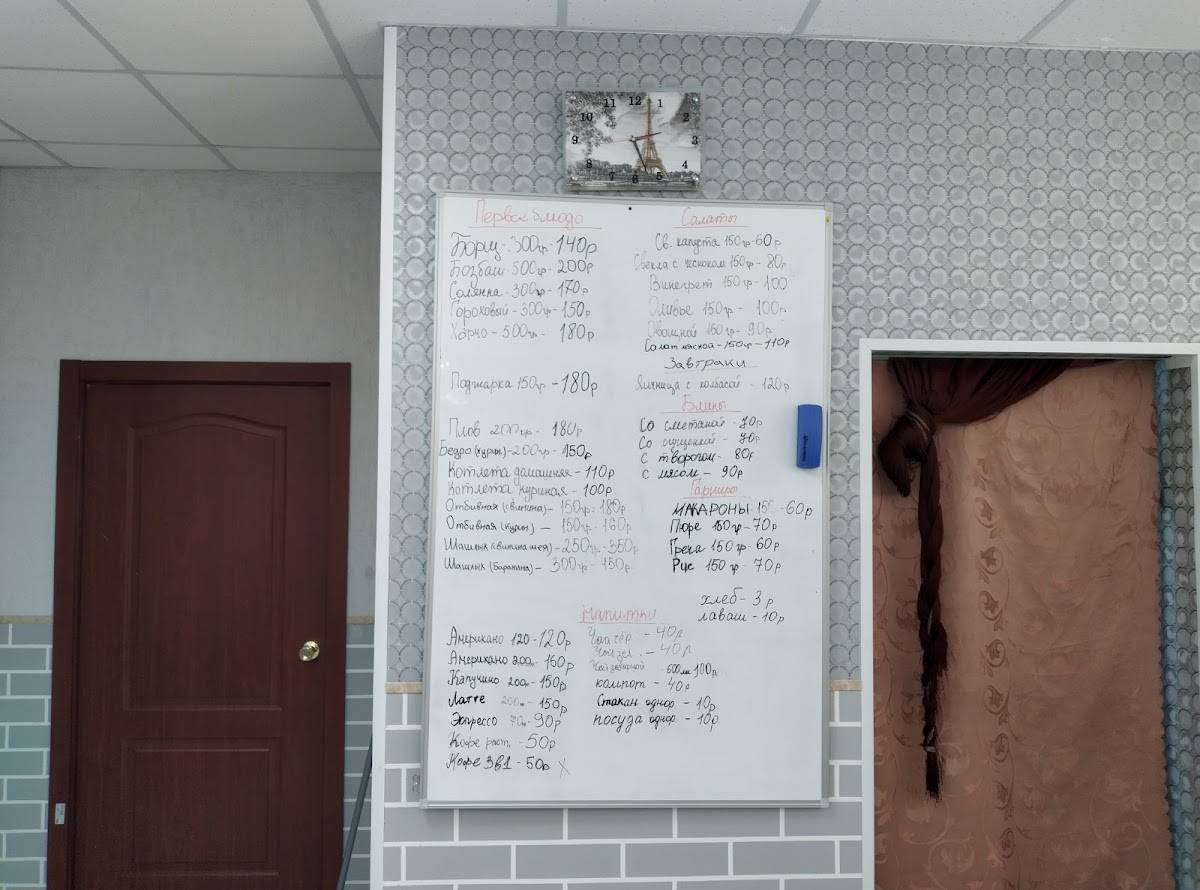 11 12 1
10 2
9 3
8 4
7 6 5
Первое блюдо
Борщ - 300гр - 140р
Бозбаш 500гр - 200р
Солянка - 300гр - 170р
Гороховый - 300гр - 150р
Харчо - 500гр - 180р
Поджарка 150гр - 180р
Плов 200гр - 180р
Бедро (курин) - 200гр - 150р
Котлета домашняя - 110р
Котлета куриная - 100р
Отбивная (свинина) - 150гр - 180р
Отбивная (курин) - 150гр - 160р
Шашлык (свинина шея) - 250гр - 350р
Шашлык (баранина) - 300гр - 450р
Салаты
Св. капуста 150гр - 60р
Свекла с чесноком 150гр - 80р
Винегрет 150гр - 100
Оливье 150гр - 100р
Овощной 150гр - 90р
Салат мясной - 150гр - 110р
Завтраки
Яичница с колбасой - 120р
Блины
Со сметаной - 70р
Со сгущенкой - 70р
с творогом - 80р
с мясом - 90р
Гарниры
МАКАРОНЫ - 150 - 60р
Пюре 150гр - 70р
Греча 150гр - 60р
Рис 150гр - 70р
хлеб - 3р
лаваш - 10р
Напитки
Американо 120 - 120р
Американо 200м - 160р
Капучино 200м - 150р
Латте 200м - 150р
Эспрессо 70м - 90р
Кофе раст. - 50р
Кофе 3в1 - 50р
Чай чёр. - 40р
Чай зел. - 40р
Чай заварной 600мл 100р
компот - 40р
Стакан однор - 10р.
посуда однор - 10р.